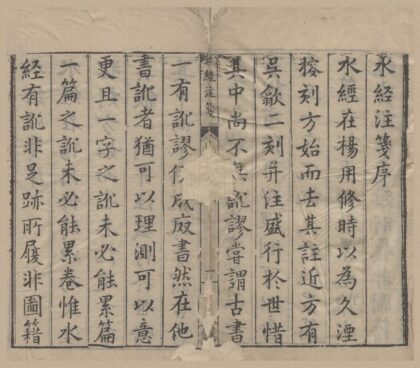 水經注箋序
水經在楊用修時以為久湮
刻方始而去其註近方有
吳歙二刻并注盛行於世惜
其中尚不無訛謬嘗謂古書
經注箋
一有訛謬成廢書然在他
書訛者猶可以理測可以意
更且一字之訛未必能累篇
一篇之訛未必能累卷惟水
經有訛非足跡所履非圖籍